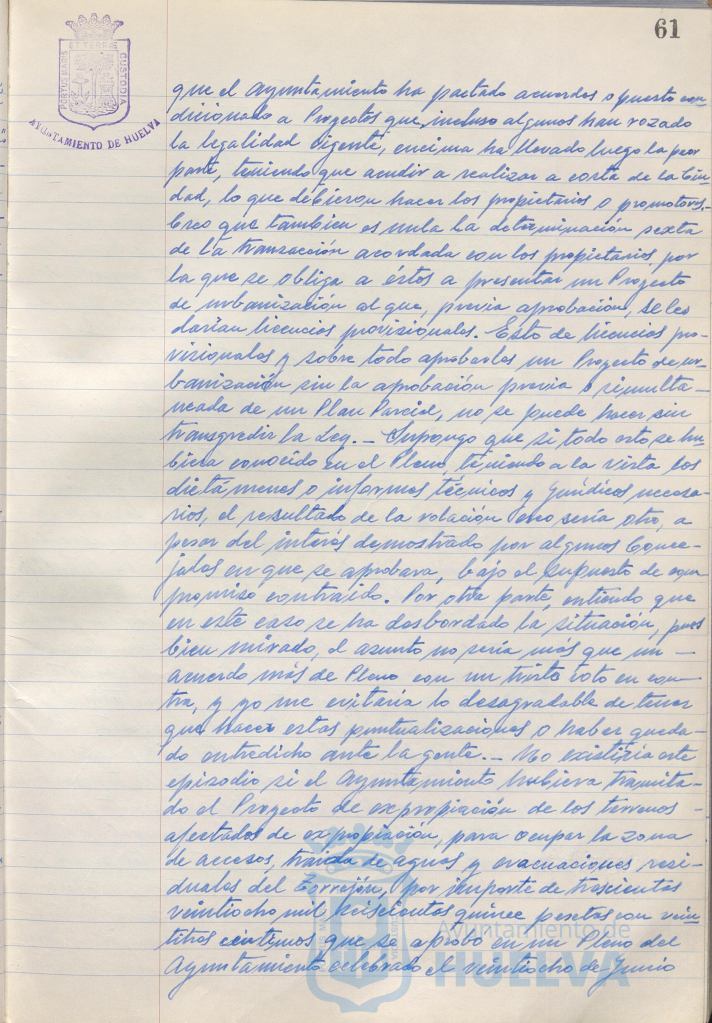 61
PORTUS MARIS
ET TERRAE
CUSTODIA
AYUNTAMIENTO DE HUELVA
que el Ayuntamiento ha pactado acuerdos o puesto con-
dicionado a Proyectos que, incluso algunos han rozado
la legalidad vigente, encima ha llevado luego la peor
parte, teniendo que acudir a realizar a costa de la Ciu-
dad, lo que debieron hacer los propietarios o promotores.
Creo que tambien es nula la determinación sexta
de la transacción acordada con los propietarios, por
la que se obliga a éstos a presentar un Proyecto
de urbanización al que, previa aprobación, se les
darían licencias provisionales. Esto de licencias pro-
visionales y sobre todo aprobarles un Proyecto de ur-
banización sin la aprobación previa o simulta-
neada de un Plan Parcial, no se puede hacer sin
transgredir la Ley. — Supongo que si todo esto se hu-
biera conocido en el Pleno, teniendo a la vista los
dictámenes o informes técnicos y jurídicos necesa-
rios, el resultado de la votación creo sería otro, a
pesar del interés demostrado por algunos Conce-
jales en que se aprobara, bajo el supuesto de com-
promiso contraido. Por otra parte, entiendo que
en este caso se ha desbordado la situación, pues
bien mirado, el asunto no sería más que un —
acuerdo más de Pleno con un triste voto en con-
tra, y yo me evitaría lo desagradable de tener
que hacer estas puntualizaciones o haber queda-
do entredicho ante la gente. — No existiría este
episodio si el Ayuntamiento hubiera tramita-
do el Proyecto de expropiación de los terrenos —
afectados de expropiación, para ocupar la zona
de accesos, traida de aguas y evacuaciones resi-
duales del Torrejón, por importe de trescientas
veintiocho mil seiscientas quince pesetas con vein-
titres centimos que se aprobó en un Pleno del
Ayuntamiento celebrado el veintiocho de Junio
Ayuntamiento de
HUELVA